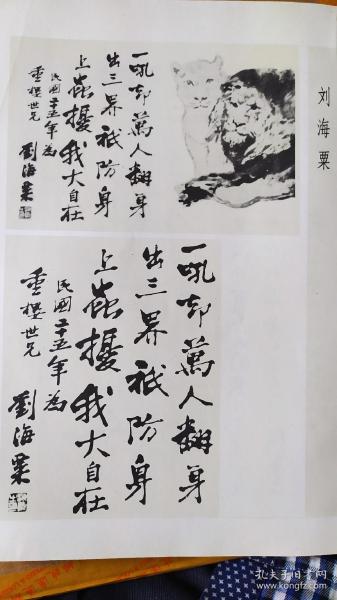 刘海粟
一吼却萬人翻身
出三界祇防身
上蟲擾我大自在
民國二十五年為
重樓世兄
劉海粟
一吼却萬人翻身
出三界祇防身
上蟲擾我大自在
民國二十五年為
重樓世兄
劉海粟
孔夫子旧书网